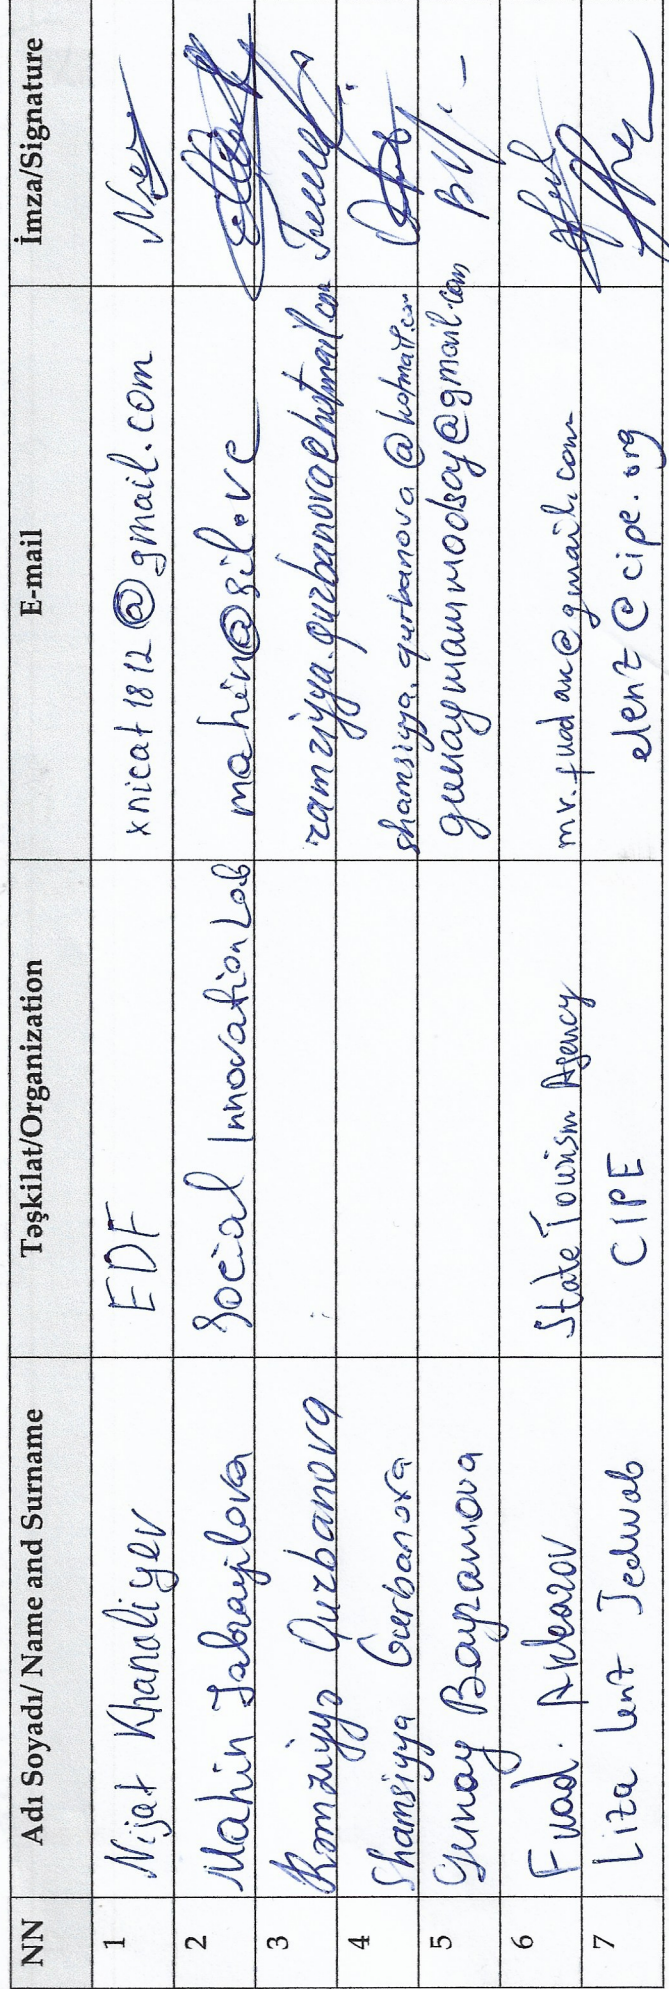 NN Adı Soyadı/ Name and Surname Təşkilat/Organization E-mail İmza/Signature
1 Nijat Khanaliyev EDF xnicat1812@gmail.com
2 Mahin Jabrayilova Social Innovation Lab mahin@sil.ve
3 Rəmziyyə Qurbanova ramziyya.qurbanova@hotmail.com
4 Shamsiyya Gurbanova shamsiyya.qurbanova@hotmail.com
5 Gunay Bayramova gunaymammodsoy@gmail.com
6 Fuad. State Tourism Agency mr.fuad
7 Liza Lenz Jedwab CIPE elenz@cipe.org